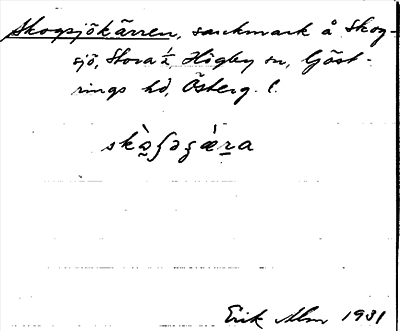 Skogsjökärren, sankmark å Skog-
sjö, Stora ½, Högby sn, Göst-
rings hd, Österg. l.
skὰʃəʒæ̀ra
Erik Alm 1931